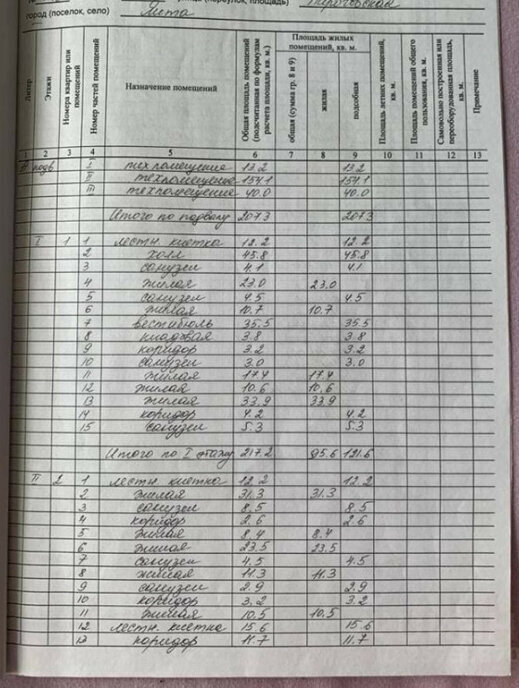 город (поселок, село) Ялта Пироговская
Литер
Этажи
Номера квартир или помещений
Номер частей помещений
Назначение помещений
Общая площадь помещений (подсчитанная по формулам расчета площади, кв. м.)
Площадь жилых помещений, кв. м.
общая (сумма гр. 8 и 9)
жилая
подсобная
Площадь летних помещений, кв. м
Площадь помещений общего пользования, кв. м
Самовольно построенная или переоборудованная площадь, кв. м
Примечание
2 3 4 5 6 7 8 9 10 11 12 13
подв I тех помещение 13.2 13.2
II тех помещение 154.1 154.1
III тех помещение 40.0 40.0
Итого по подвалу 207.3 207.3
I 1 1 лестн. клетка 12.2 12.2
2 холл 45.8 45.8
3 санузел 4.1 4.1
4 жилая 23.0 23.0
5 санузел 4.5 4.5
6 жилая 10.7 10.7
7 вестибюль 35.5 35.5
8 кладовая 3.8 3.8
9 коридор 3.2 3.2
10 санузел 3.0 3.0
11 жилая 17.4 17.4
12 жилая 10.6 10.6
13 жилая 33.9 33.9
14 коридор 4.2 4.2
15 санузел 5.3 5.3
Итого по I этажу 217.2 95.6 121.6
II 2 1 лестн. клетка 12.2 12.2
2 жилая 31.3 31.3
3 санузел 8.5 8.5
4 коридор 2.6 2.6
5 жилая 8.4 8.4
6 жилая 23.5 23.5
7 санузел 4.5 4.5
8 жилая 11.3 11.3
9 санузел 2.9 2.9
10 коридор 3.2 3.2
11 жилая 10.5 10.5
12 лестн. клетка 15.6 15.6
13 коридор 11.7 11.7